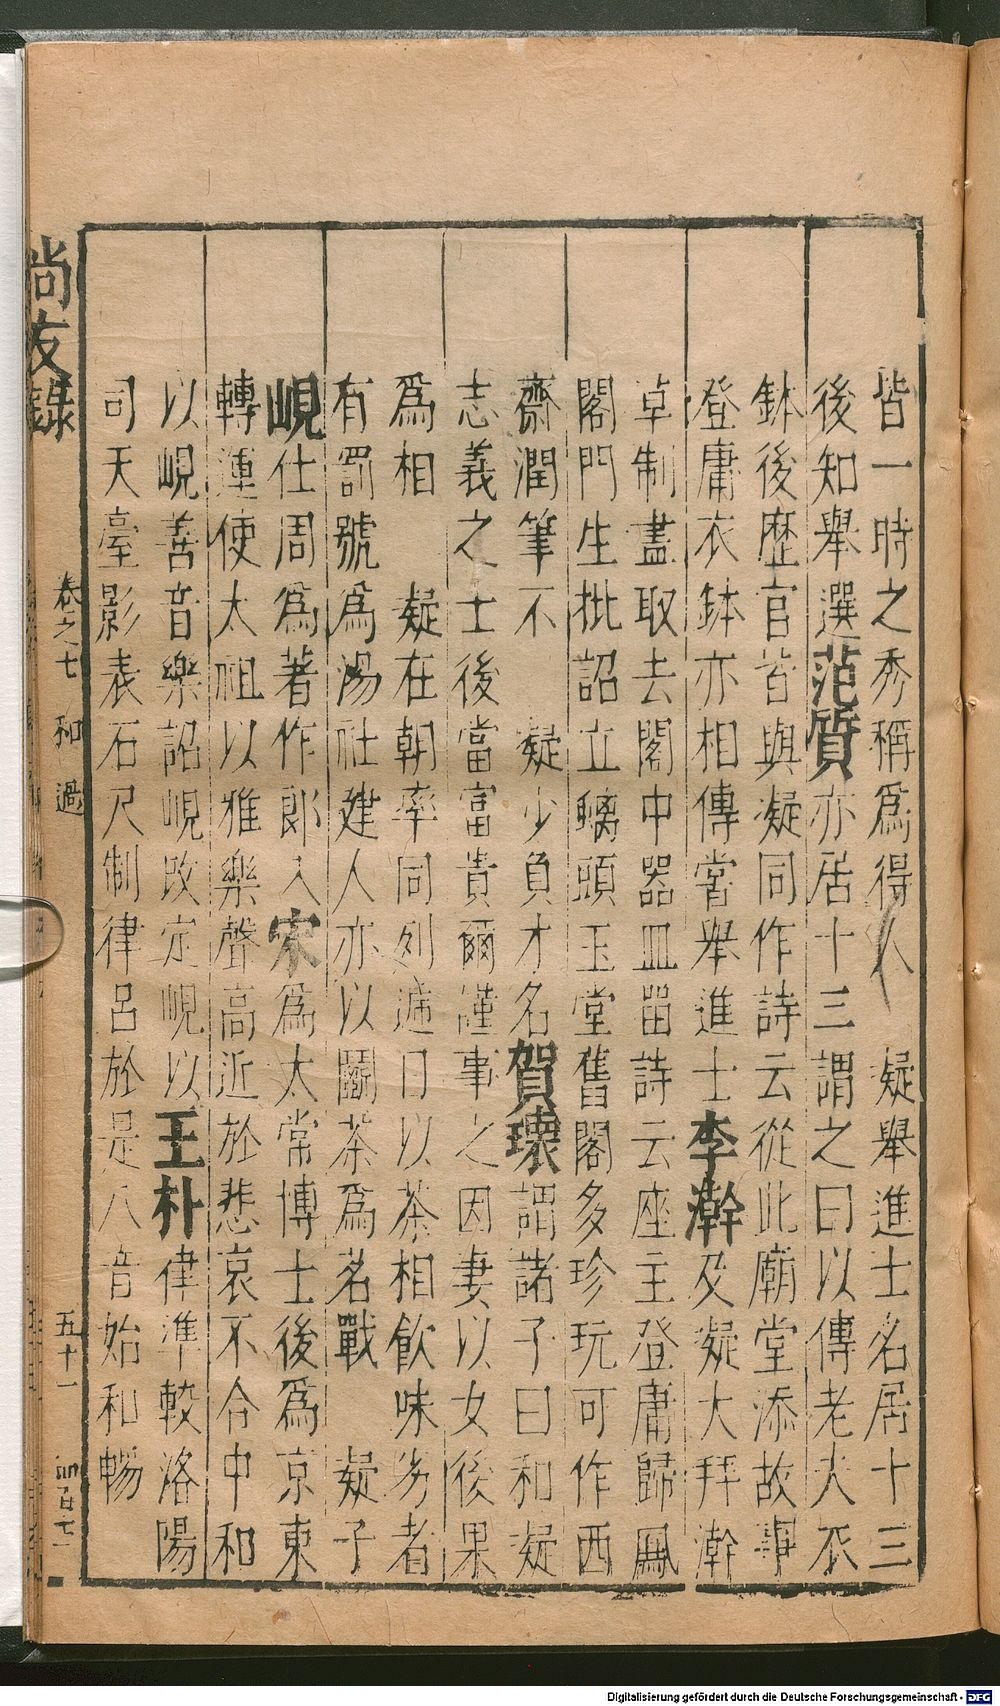 皆一時之秀稱爲得人　疑舉進士名居十三
後知舉選范質亦居十三謂之曰以傳老夫衣
鉢後歷官皆與凝同作詩云從此廟堂添故事
登庸衣鉢亦相傳嘗舉進士李澣及凝大拜澣
草制盡取去閣中器皿留詩云座主登庸歸鳳
閣門生批詔立螭頭玉堂舊閣多珍玩可作西
齋潤筆不　疑少負才名賀瓌謂諸子曰和凝
志義之士後當富貴爾謹事之因妻以女後果
爲相　疑在朝率同列遞日以茶相飲味劣者
有罰號爲湯社建人亦以鬭茶爲名戰　疑子
峴仕周爲著作郎入宋爲太常博士後爲京東
轉運使太祖以雅樂聲高近於悲哀不合中和
以峴善音樂詔峴改定峴以王朴律準較洛陽
司天臺影表石尺制律呂於是八音始和暢
尚友錄
卷之七　和　過
五十一
Digitalisierung gefördert durch die Deutsche Forschungsgemeinschaft - DFG